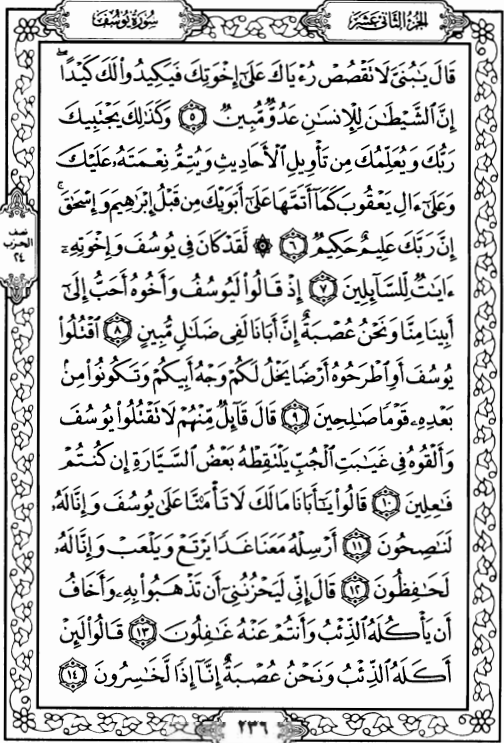 سُورَةُ يُوسُفَ
الجُزْءُ الثَّانِي عَشَرَ
قَالَ يَٰبُنَىَّ لَا تَقْصُصْ رُءْيَاكَ عَلَىٰٓ إِخْوَتِكَ فَيَكِيدُوا۟ لَكَ كَيْدًا ۖ
إِنَّ ٱلشَّيْطَٰنَ لِلْإِنسَٰنِ عَدُوٌّ مُّبِينٌ ٥ وَكَذَٰلِكَ يَجْتَبِيكَ
رَبُّكَ وَيُعَلِّمُكَ مِن تَأْوِيلِ ٱلْأَحَادِيثِ وَيُتِمُّ نِعْمَتَهُۥ عَلَيْكَ
وَعَلَىٰٓ ءَالِ يَعْقُوبَ كَمَآ أَتَمَّهَا عَلَىٰٓ أَبَوَيْكَ مِن قَبْلُ إِبْرَٰهِيمَ وَإِسْحَٰقَ ۚ
إِنَّ رَبَّكَ عَلِيمٌ حَكِيمٌ ٦ ۞ لَّقَدْ كَانَ فِى يُوسُفَ وَإِخْوَتِهِۦٓ
ءَايَٰتٌ لِّلسَّآئِلِينَ ٧ إِذْ قَالُوا۟ لَيُوسُفُ وَأَخُوهُ أَحَبُّ إِلَىٰٓ
أَبِينَا مِنَّا وَنَحْنُ عُصْبَةٌ إِنَّ أَبَانَا لَفِى ضَلَٰلٍ مُّبِينٍ ٨ ٱقْتُلُوا۟
يُوسُفَ أَوِ ٱطْرَحُوهُ أَرْضًا يَخْلُ لَكُمْ وَجْهُ أَبِيكُمْ وَتَكُونُوا۟ مِنۢ
بَعْدِهِۦ قَوْمًا صَٰلِحِينَ ٩ قَالَ قَآئِلٌ مِّنْهُمْ لَا تَقْتُلُوا۟ يُوسُفَ
وَأَلْقُوهُ فِى غَيَٰبَتِ ٱلْجُبِّ يَلْتَقِطْهُ بَعْضُ ٱلسَّيَّارَةِ إِن كُنتُمْ
فَٰعِلِينَ ١٠ قَالُوا۟ يَٰٓأَبَانَا مَا لَكَ لَا تَأْمَ۫نَّا عَلَىٰ يُوسُفَ وَإِنَّا لَهُۥ
لَنَٰصِحُونَ ١١ أَرْسِلْهُ مَعَنَا غَدًا يَرْتَعْ وَيَلْعَبْ وَإِنَّا لَهُۥ
لَحَٰفِظُونَ ١٢ قَالَ إِنِّى لَيَحْزُنُنِىٓ أَن تَذْهَبُوا۟ بِهِۦ وَأَخَافُ
أَن يَأْكُلَهُ ٱلذِّئْبُ وَأَنتُمْ عَنْهُ غَٰفِلُونَ ١٣ قَالُوا۟ لَئِنْ
أَكَلَهُ ٱلذِّئْبُ وَنَحْنُ عُصْبَةٌ إِنَّآ إِذًا لَّخَٰسِرُونَ ١٤
نصف
الحزب
٢٤
٢٣٦